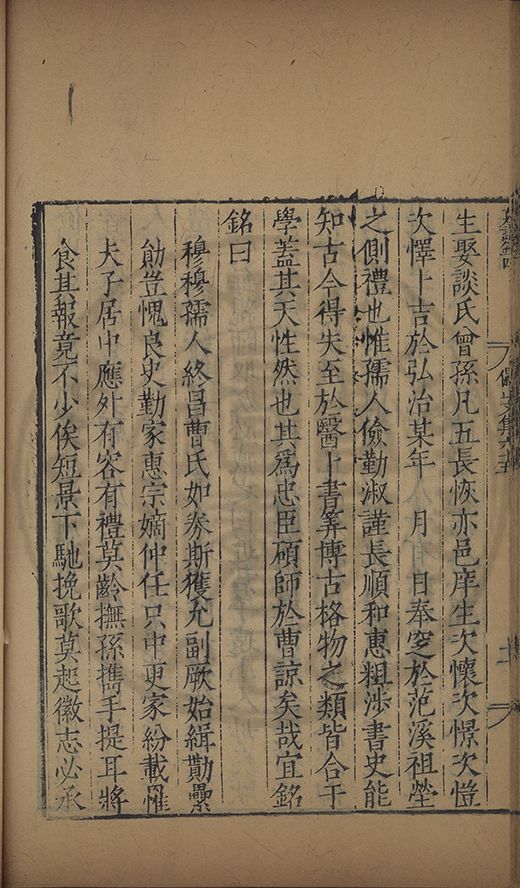 生娶談氏曾孫凡五長恢亦邑庠生次懷次憬次愷
次懌卜吉於弘治某年　月　日奉窆於范溪祖塋
之側禮也惟孺人儉勤淑謹長順和惠粗涉書史能
知古今得失至於醫卜書筭博古格物之類皆合于
學蓋其天性然也其爲忠臣碩師於曹諒矣哉宜銘
銘曰
穆穆孺人終昌曹氏如券斯獲允副厥始緝勩纍
勛豈愧良史勤家惠宗嫡仲任只中更家紛載罹
夫子居中應外有容有禮莫齡撫孫携手提耳將
食其報竟不少俟短景下馳挽歌莫起徽志必承